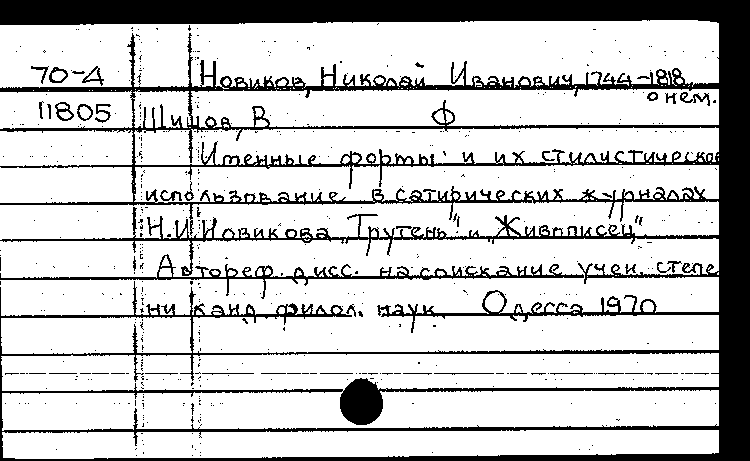 70-А Новиков, Николай Иванович, 1744-1818,
о нем.
11805 Шишов, В Ф
Именные формы и их стилистическое
использование в сатирических журналах
Н.И Новикова „Трутень" и „Живописец".
Автореф. дисс. на соискание учен. степе
ни канд. филол. наук. Одесса 1970